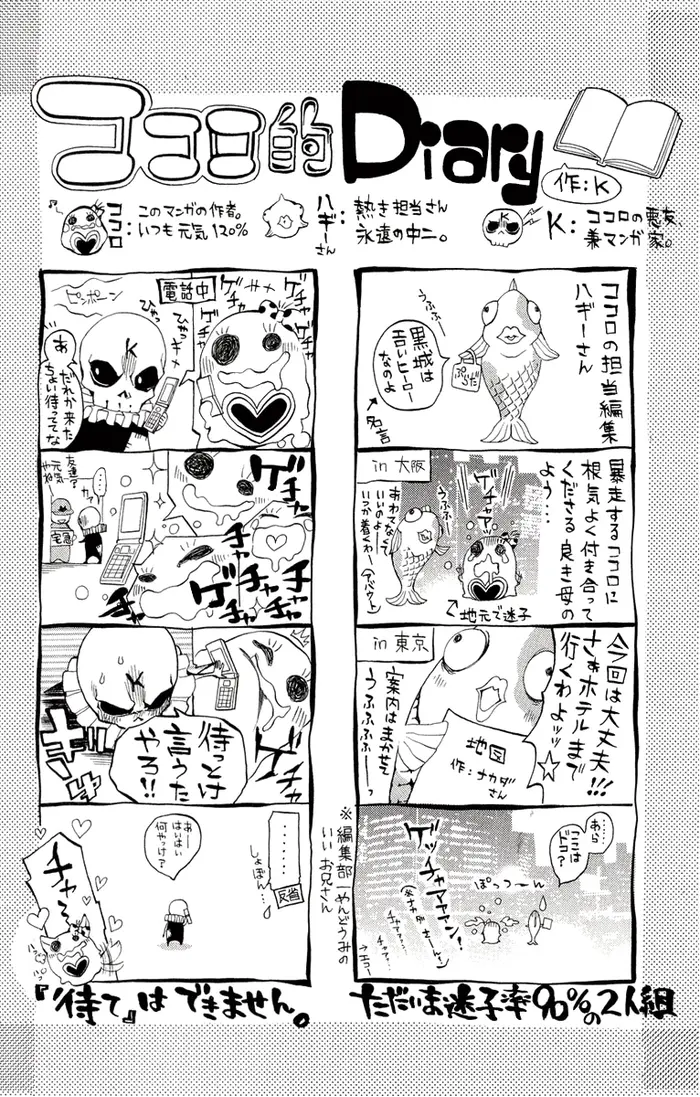 コココ的Diary
作:K
ココロ:
このマンガの作者。
いつも元気120%
ハギーさん:
熱き担当さん
永遠の中二。
K:
ココロの悪友、
兼マンガ家。
ココロの担当編集
ハギーさん
うふふー
黒城は
苦いヒーロー
なのよ
ぷらだ
名言
暴走するココロに
根気よく付き合って
くださる良き母の
よう…
in 大阪
ゲチャァァ
うふふー
あわてなくて
いいのよー
いつか着くわー
(アバウト)
地元で迷子
in 東京
今回は大丈夫!!!
さぁホテルまで
行くわよッッ☆
案内はまかせて
うふふふふーっ
地図
作:ナカダ
さん
あら、
ここは
ドコ?
ぽっつーん
ゲッチャマァァン!
チャァ…
エコー
※編集部一やんどうみの
いいお兄さん
ただいま迷子率90%の2人組
電話中
ゲチャ
ゲチャ
ピンポーン
ひゃっ
ひゃっ
K
あ
だれか来た
ちょい待っててな
ゲチャ
チャ
チャ
ゲチャ
ゲチャ
チャ
友達?
や元気
やね
…
宅急
待っとけ
言うた
やろ!!
……
しょぼん…
反省
あー
はいはい
何やっけ?
チャ〜
『待て』はできません。